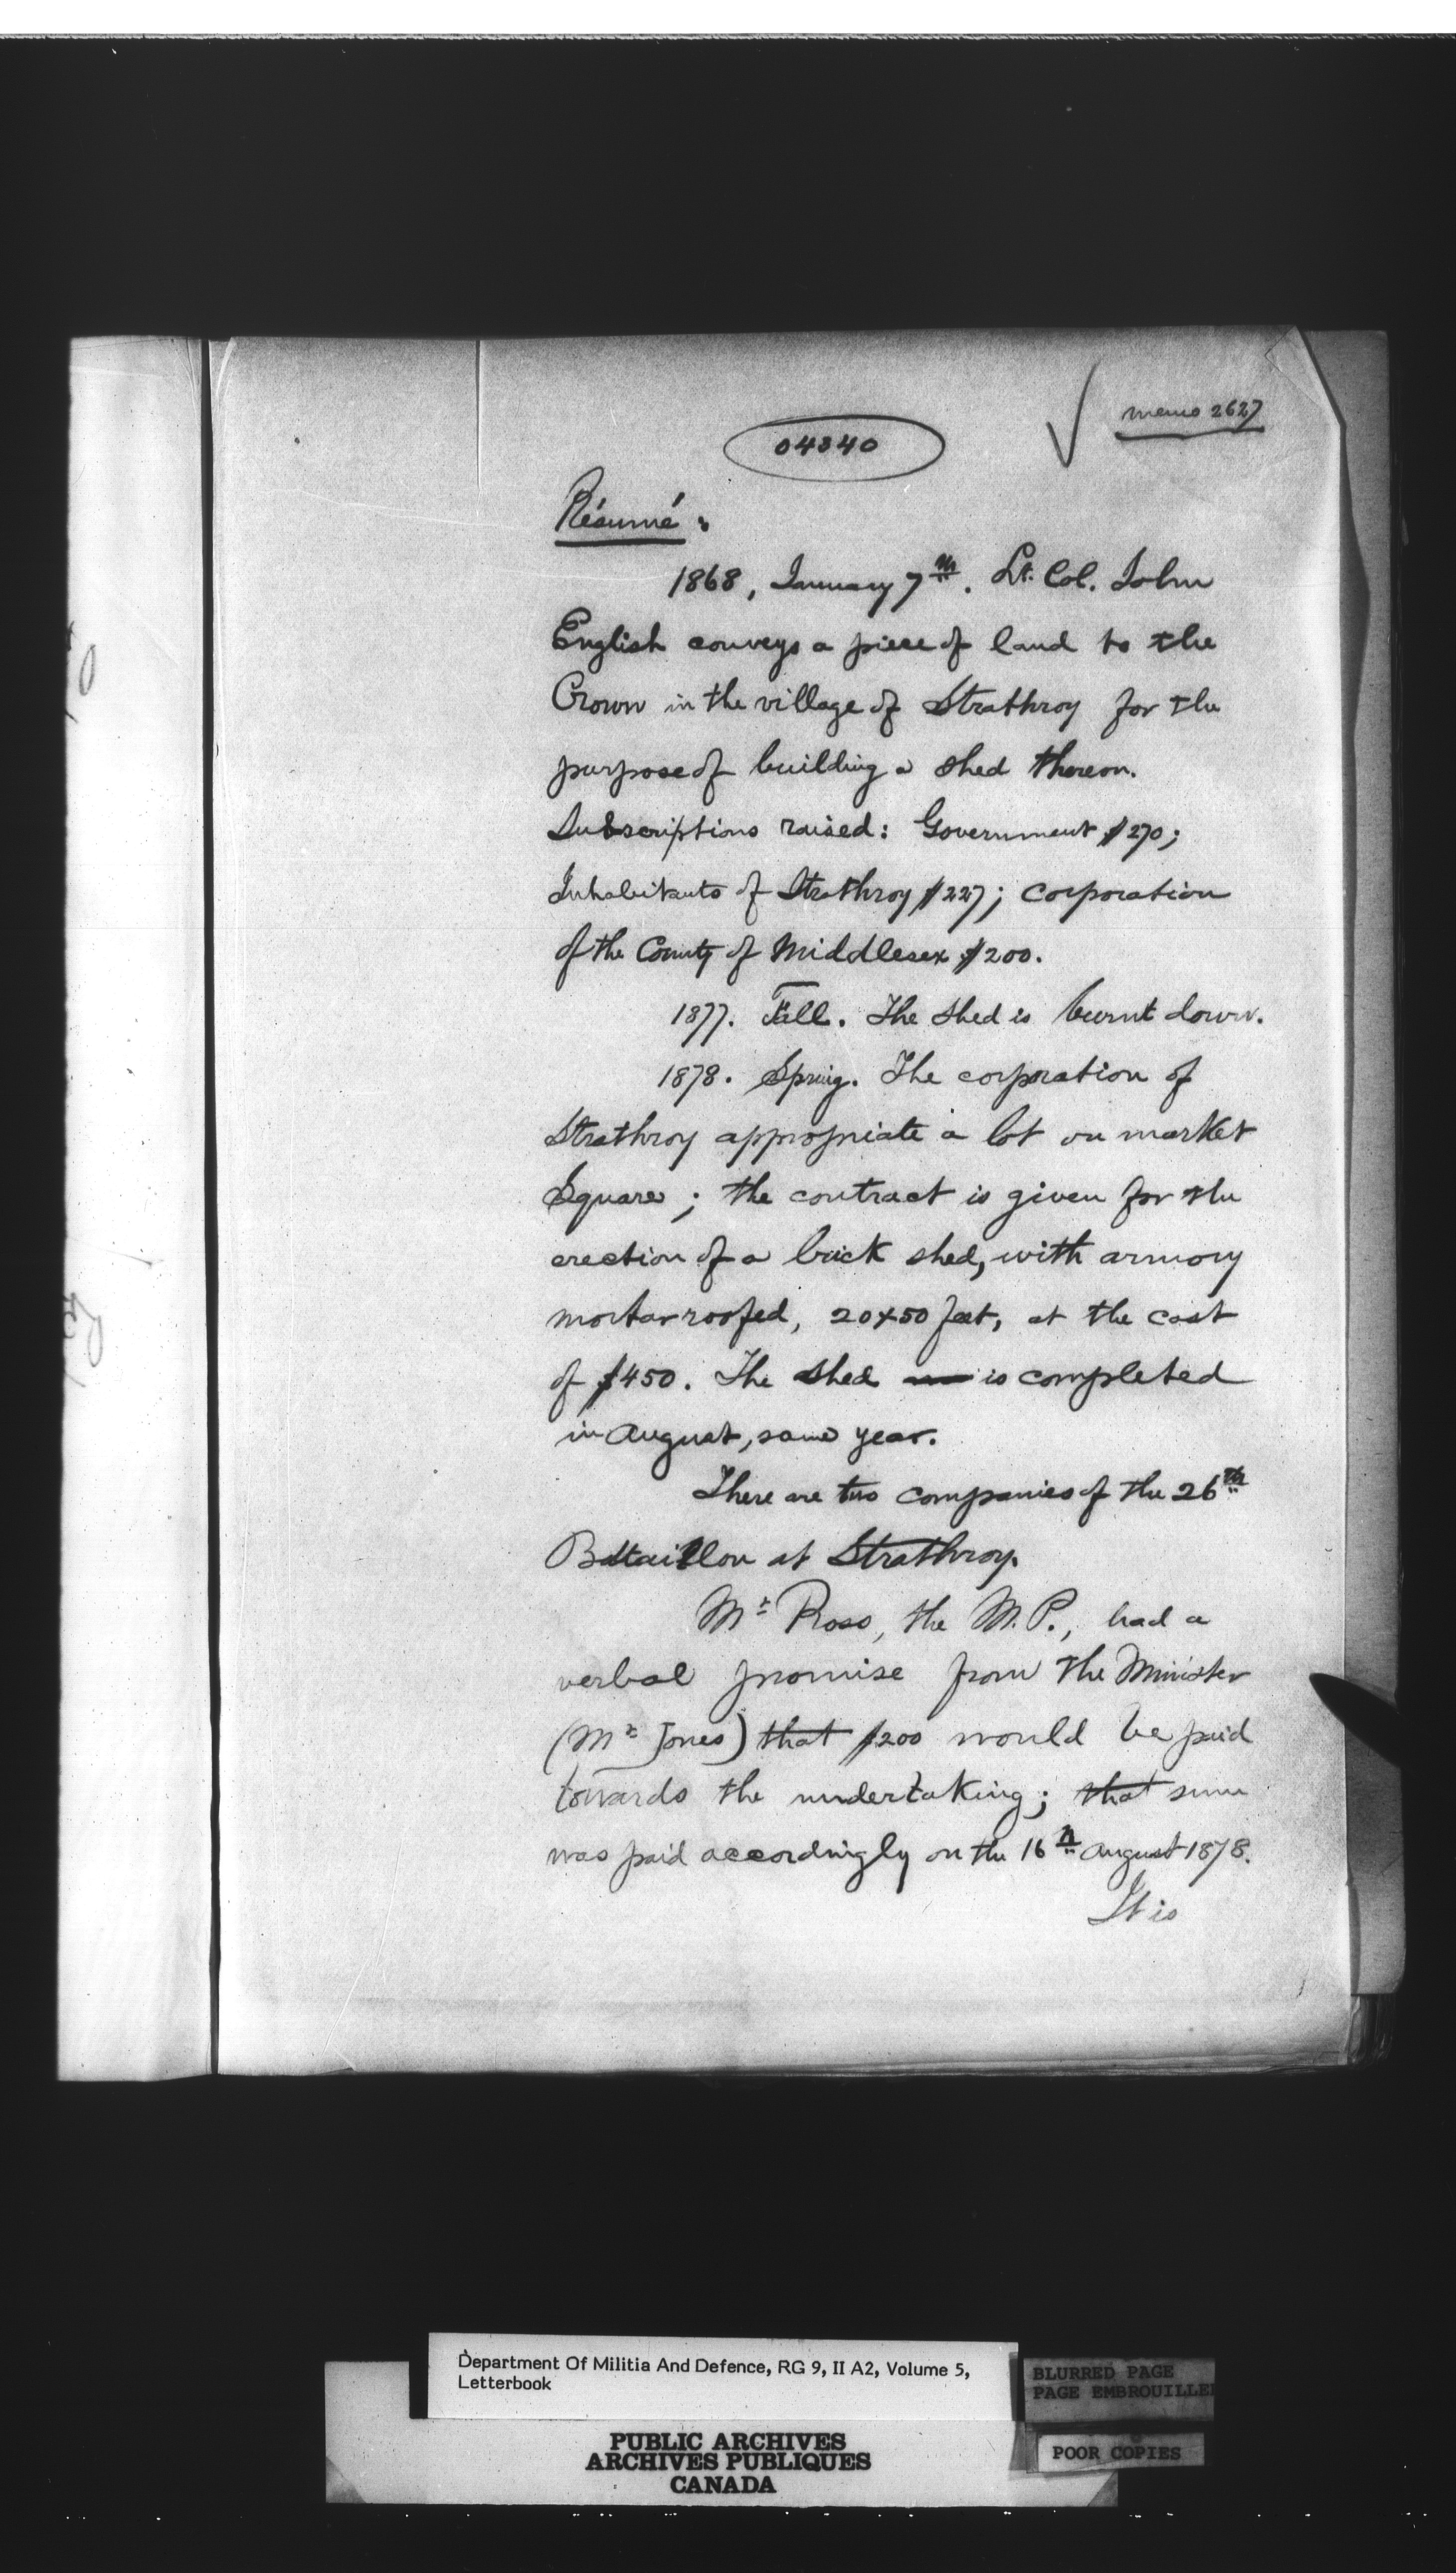 memo 2627
04340
Résumé :
1868, January 7th. Lt. Col. John
English conveys a piece of land to the
Crown in the village of Strathroy for the
purpose of building a shed thereon.
Subscriptions raised: Government $270;
Inhabitants of Strathroy $227; corporation
of the County of Middlesex $200.
1877. Fall. The shed is burnt down.
1878. Spring. The corporation of
Strathroy appropriate a lot on market
Square; the contract is given for the
erection of a brick shed, with armory
mortar roofed, 20x50 feet, at the cost
of $450. The shed is completed
in August, same year.
There are two companies of the 26th
Battaillon at Strathroy.
Mr Ross, the M.P., had a
verbal promise from the Minister
(Mr Jones) that $200 would be paid
towards the undertaking; that sum
was paid accordingly on the 16th August 1878.
It is
Department Of Militia And Defence, RG 9, II A2, Volume 5,
Letterbook
BLURRED PAGE
PAGE EMBROUILLEE
POOR COPIES
PUBLIC ARCHIVES
ARCHIVES PUBLIQUES
CANADA